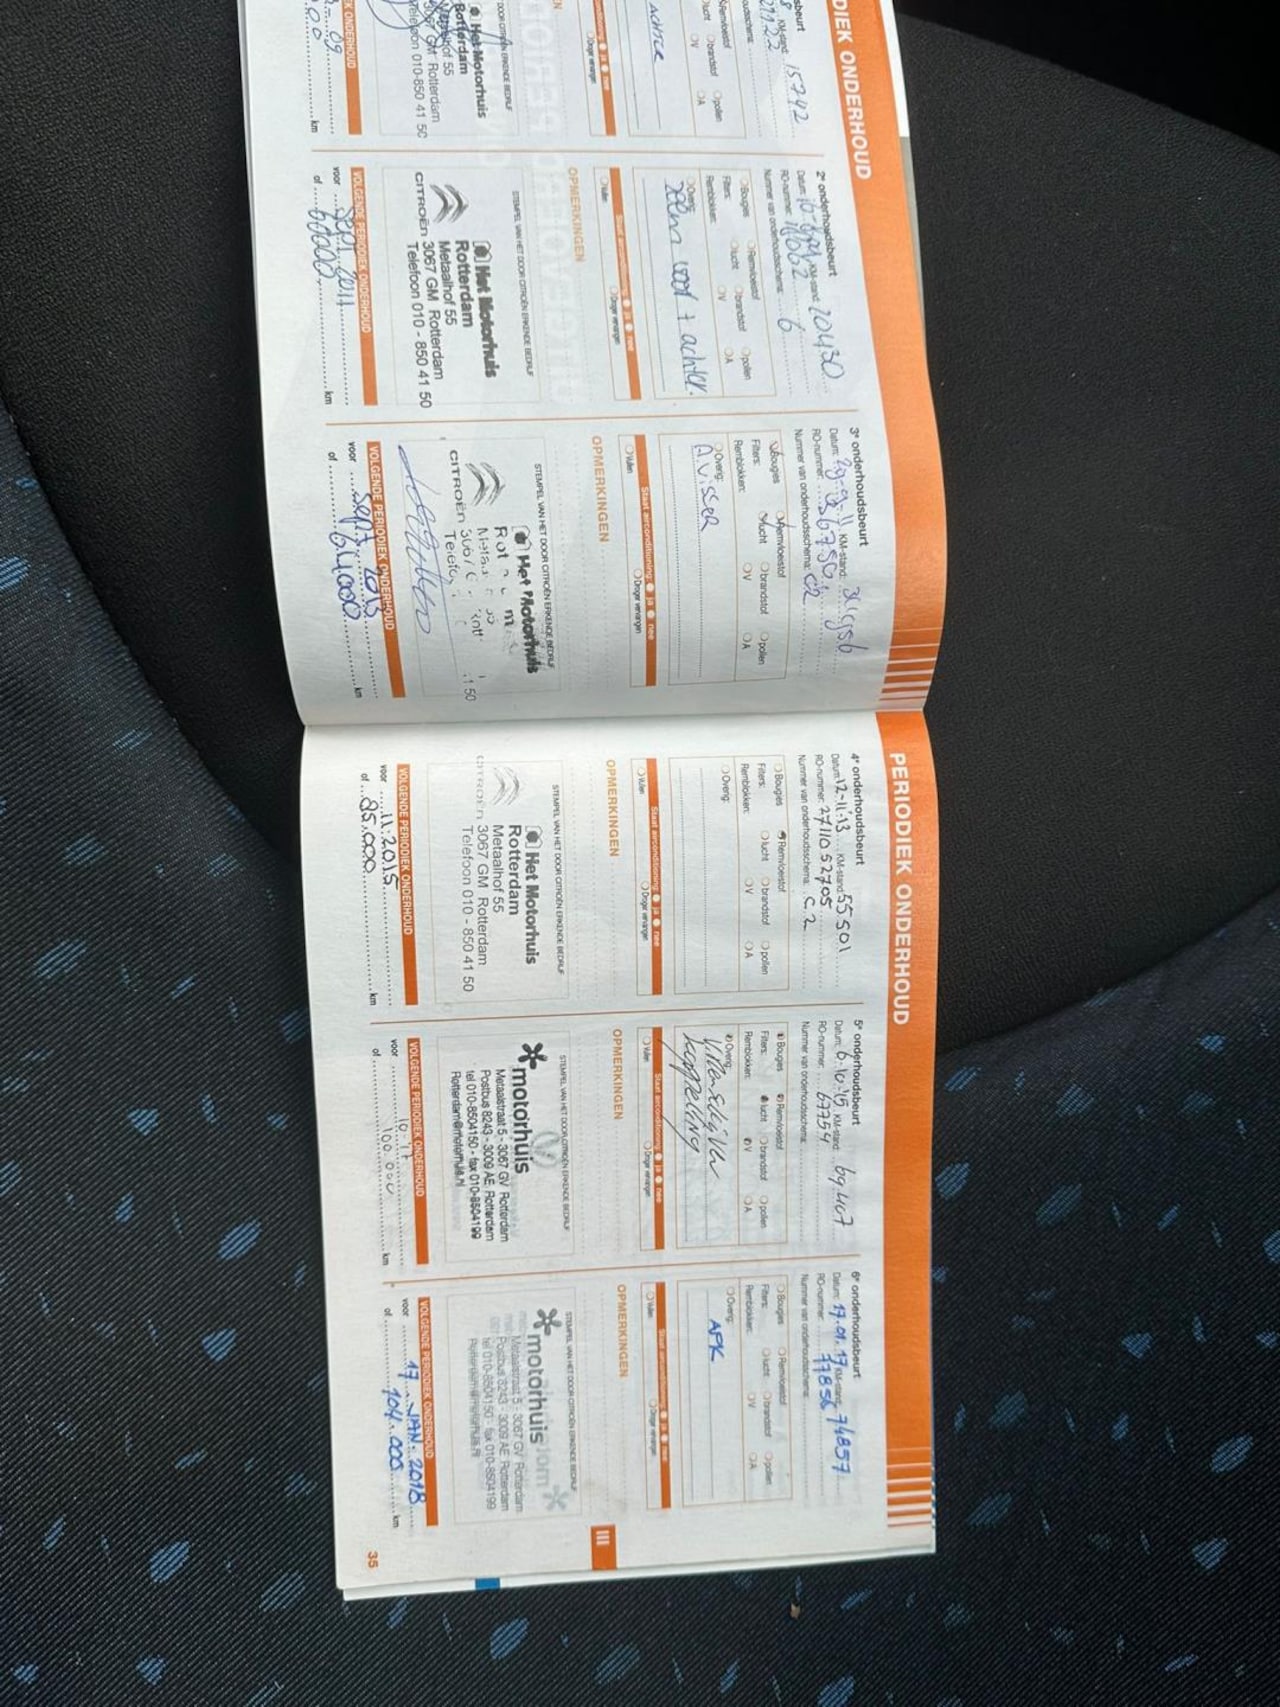 DIEK ONDERHOUD
KM-stand: 15742
Remvloeistof
lucht
brandstof
pollen
V
A
achter
ja nee
Droger vervangen
Het Motorhuis
Rotterdam
hof 55
GM Rotterdam
Telefoon 010-850 41 50
K ONDERHOUD
km
2e onderhoudsbeurt
Datum: KM-stand: 20430
RO-nummer:
Nummer van onderhoudsschema: 6
Bougies Remvloeistof
Filters: lucht brandstof pollen
Remblokken: V A
Overig:
voor + achter.
Staat airconditioning: ja nee
Vullen Droger vervangen
OPMERKINGEN
STEMPEL VAN HET DOOR CITROËN ERKENDE BEDRIJF
Het Motorhuis
Rotterdam
Metaalhof 55
CITROËN 3067 GM Rotterdam
Telefoon 010 - 850 41 50
VOLGENDE PERIODIEK ONDERHOUD
voor sept 2011
of 60000 km
3e onderhoudsbeurt
Datum: 29-9-11 KM-stand:
RO-nummer:
Nummer van onderhoudsschema: C2
Bougies Remvloeistof
Filters: lucht brandstof pollen
Remblokken: V A
Overig:
Staat airconditioning: ja nee
Vullen Droger vervangen
OPMERKINGEN
STEMPEL VAN HET DOOR CITROËN ERKENDE BEDRIJF
Het Motorhuis
CITROËN
VOLGENDE PERIODIEK ONDERHOUD
voor sept 2013
of 64000 km
PERIODIEK ONDERHOUD
4e onderhoudsbeurt
Datum: 12-11-13 KM-stand: 55501
RO-nummer: 2711052705
Nummer van onderhoudsschema: C.2
Bougies Remvloeistof
Filters: lucht brandstof pollen
Remblokken: V A
Overig:
Staat airconditioning: ja nee
Vullen Droger vervangen
OPMERKINGEN
STEMPEL VAN HET DOOR CITROËN ERKENDE BEDRIJF
Het Motorhuis
Rotterdam
Metaalhof 55
CITROËN 3067 GM Rotterdam
Telefoon 010 - 850 41 50
VOLGENDE PERIODIEK ONDERHOUD
voor 11.2015
of 85.000 km
5e onderhoudsbeurt
Datum: 6-10-15 KM-stand: 69.407
RO-nummer: 67754
Nummer van onderhoudsschema:
Bougies Remvloeistof
Filters: lucht brandstof pollen
Remblokken: V A
Overig:
koppeling
Staat airconditioning: ja nee
Vullen Droger vervangen
OPMERKINGEN
STEMPEL VAN HET DOOR CITROËN ERKENDE BEDRIJF
motorhuis
Metaalstraat 5 - 3067 GV Rotterdam
Postbus 8243 - 3009 AE Rotterdam
tel 010-8504150 - fax 010-8504199
Rotterdam@motorhuis.nl
VOLGENDE PERIODIEK ONDERHOUD
voor 10-17
of 100.000 km
6e onderhoudsbeurt
Datum: 17.01.17 KM-stand: 74857
RO-nummer: 77856
Nummer van onderhoudsschema:
Bougies Remvloeistof
Filters: lucht brandstof pollen
Remblokken: V A
Overig:
APK
Staat airconditioning: ja nee
Vullen Droger vervangen
OPMERKINGEN
STEMPEL VAN HET DOOR CITROËN ERKENDE BEDRIJF
motorhuis
Metaalstraat 5 - 3067 GV Rotterdam
Postbus 8243 - 3009 AE Rotterdam
tel 010-8504150 - fax 010-8504199
Rotterdam@motorhuis.nl
VOLGENDE PERIODIEK ONDERHOUD
voor 17 JAN. 2018
of 104.000 km
III
35